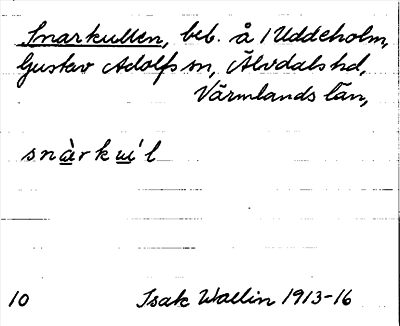 Snarkullen, beb. å 1 Uddeholm,
Gustav Adolfs sn, Älvdals hd,
Värmlands län,
snàrkuí'l
10 Isak Wallin 1913-16